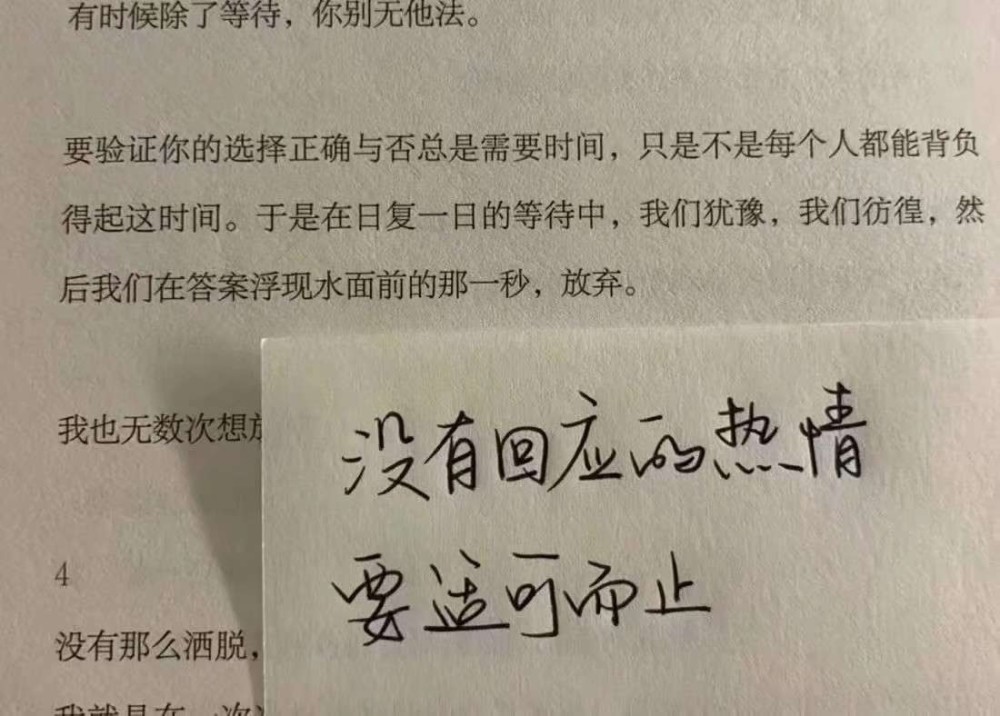 有时候除了等待，你别无他法。
要验证你的选择正确与否总是需要时间，只是不是每个人都能背负
得起这时间。于是在日复一日的等待中，我们犹豫，我们彷徨，然
后我们在答案浮现水面前的那一秒，放弃。
我也无数次想放
没有回应的热情
要适可而止
4
没有那么洒脱，
我就是在一次